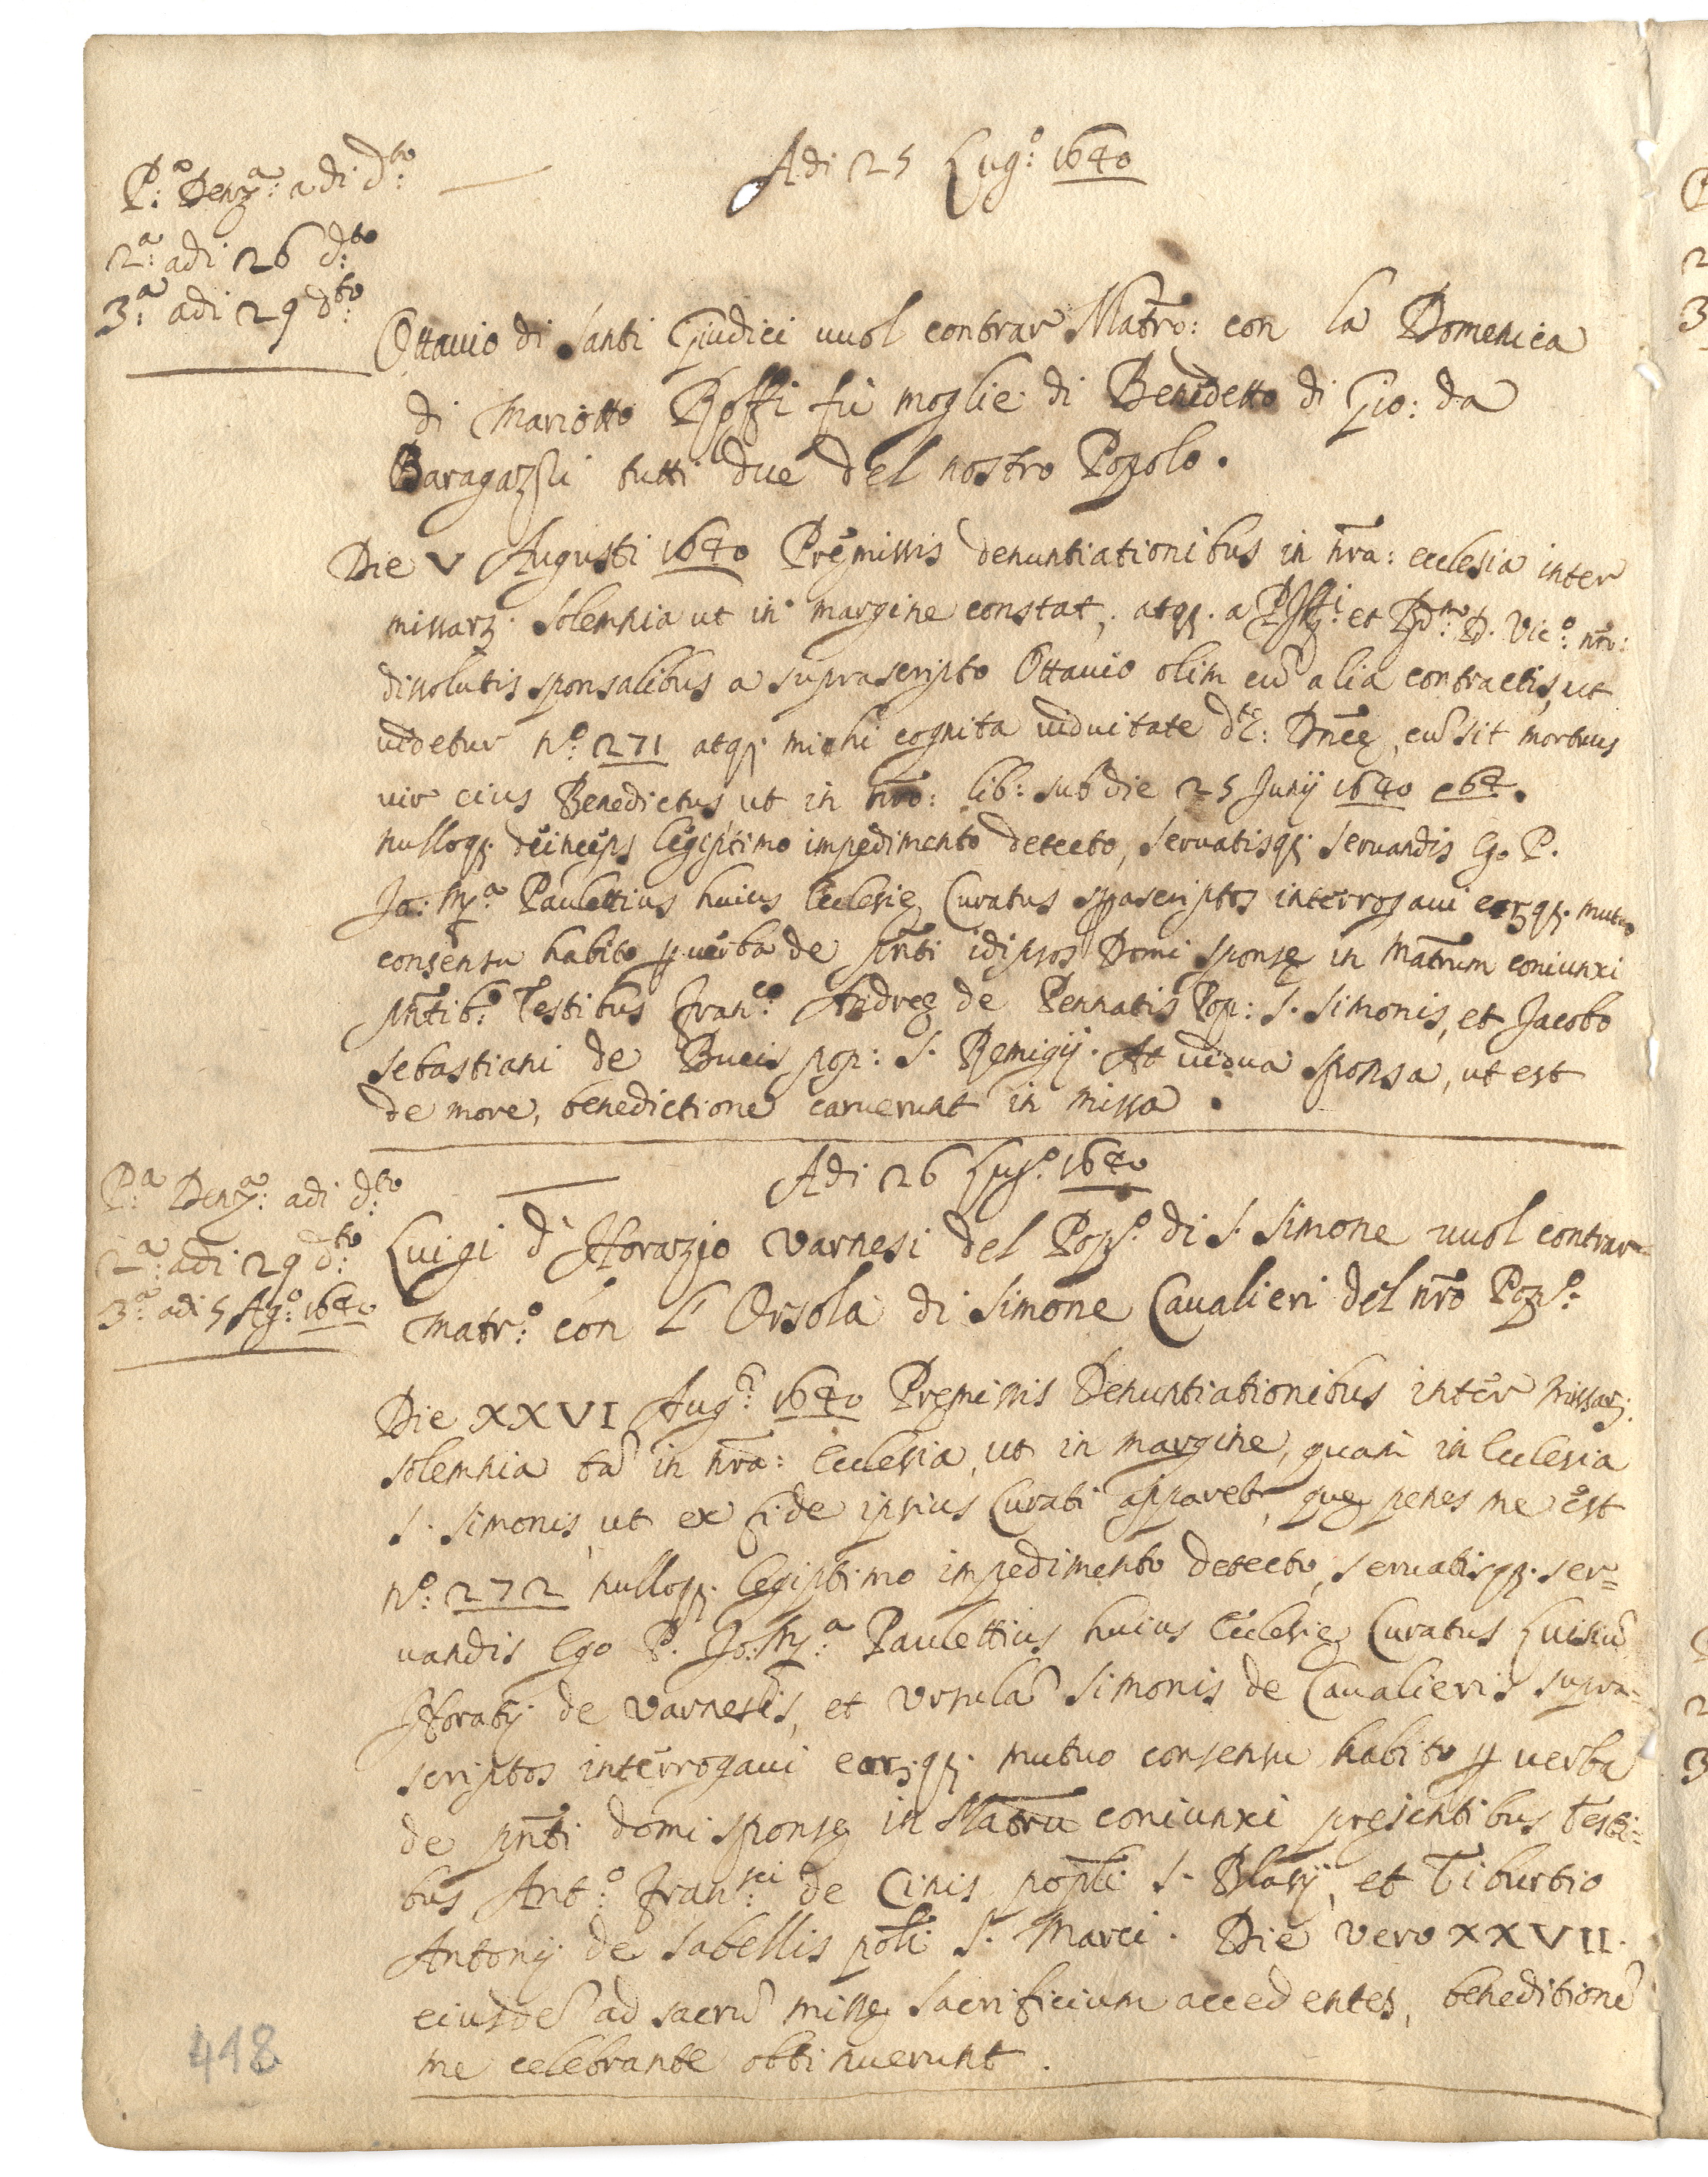 Adi 25 Lug.º 1640
P.ª Denz.ª adi d.to
2.ª adi 26 d.to
3.ª adi 29 d.to
Ottauio di Santi Giudici uuol contrar Matrõ: con la Domenica
di Mariotto Roffi fù moglie di Benedetto di Gio: da
Baragazzi tutti due del nostro Popolo.
Die V Augusti 1640 Premissis denuntiationibus in nr̃a: ecclesia inter
missarz. solemnia ut in margine constat, atq3. a et R.mo D. Vic.º nrõ:
dissolutis sponsalibus a suprascripto Ottauio olim cũ alia contractis, ut
uidetur nº. 271 atq3 michi cognita uiduitate d.te: Dñeę, cũ sit mortuus
uir eius Benedictus ut in nrõ: lib: sub die 25 Junij 1640 e 64.
nulloq3. deinceps legiptimo impedimento detecto, seruatisq3 seruandis Ego P.
Jo: M.ª Paulettius huius Ecclesię Curatus interrogaui eorz q3. mutuo
consensu habito p uerba de pñti Domi sponsę in Matr̃um coniunxi
pñtib.º Testibus Fran.co Andreę de Pennatis Pop: S. Simonis, et Jacobo
Sebastiani de Bucis pop: S. Remigij. At uidua sponsa, ut est
de more, benedictione caruerunt in missa.
Adi 26 Lug.º 1640
P.ª Denz.ª: adi d.to
2.ª adi 29 d.to
3.ª adi 5 Ag.º 1640
Luigi d' Horazio Varnesi del Pop.º di S. Simone uuol contrar=
matr.º con L' Orsola di Simone Caualieri del nr̃o Pop.º
Die XXVI Aug.ti 1640 Premissis Denuntiationibus inter missarz.
solemnia tã in nr̃a: Ecclesia, ut in margine, quam in Ecclesia
S. Simonis, ut ex fide ipsius Curati apparet, quę penes me est
nº. 272 nulloq3. legiptimo impedimento detecto, seruatisq3. ser=
uandis Ego P. Jo: M.ª Paulettius huius Ecclesię Curatus Luisiũ
Horatij de Varnesis, et Ursulã Simonis de Caualieris supra=
scriptos interrogaui eorz q3. mutuo consensu habito p uerba
de pñti domi sponsę in Matr̃u coniunxi presentibus Testi=
bus Ant.º Fran.sci de Cinis popli S. Blasij, et Tiburtio
Antonij de Sabellis poli S. Marci. Die vero XXVII.
eiusdẽ ad sacrũ missę sacrificium accedentes, beneditionẽ
me celebrante obtinuerunt.
448